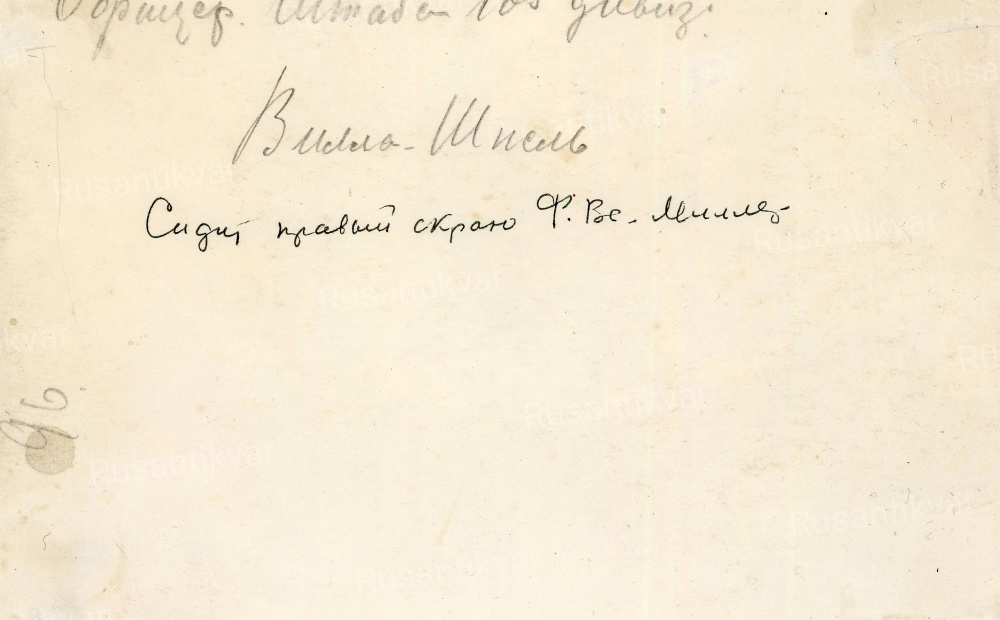 Офицер. Штаба 105 дивиз.
Вилла-Шпель
Сидит правый скраю Ф. Ве-Миллер
96.
Rusantikvar